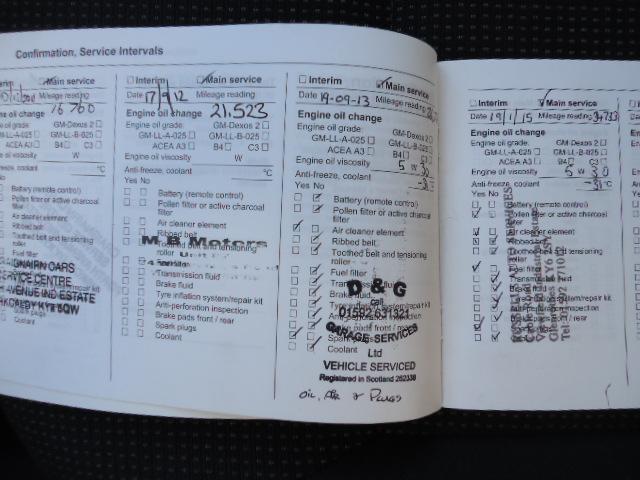 Confirmation, Service Intervals
Main service
Mileage reading
16 760
engine oil change
Engine oil grade:
GM-Dexos 2
GM-LL-A-025 GM-LL-B-025
ACEA A3 B4 C3
Engine oil viscosity W
Anti-freeze, coolant °C
Yes No
Battery (remote control)
Pollen filter or active charcoal
filter
Air cleaner element
Ribbed belt
Toothed belt and tensioning
roller
Fuel filter
SERVICE CENTRE
AVENUE IND ESTATE
Spark plugs
Coolant
Interim Main service
Date 17/9/12 Mileage reading
Engine oil change 21,523
Engine oil grade: GM-Dexos 2
GM-LL-A-025 GM-LL-B-025
ACEA A3 B4 C3
Engine oil viscosity W
Anti-freeze, coolant °C
Yes No
Battery (remote control)
Pollen filter or active charcoal
filter
Air cleaner element
Ribbed belt
M B Motors
Toothed belt and tensioning
roller
Transmission fluid
Brake fluid
Tyre inflation system/repair kit
Anti-perforation inspection
Brake pads front / rear
Spark plugs
Coolant
Interim Main service
Date 19-09-13 Mileage reading
Engine oil change
Engine oil grade: GM-Dexos 2
GM-LL-A-025 GM-LL-B-025
ACEA A3 B4 C3
Engine oil viscosity 5 W 30
Anti-freeze, coolant
Yes No
Battery (remote control)
Pollen filter or active charcoal
filter
Air cleaner element
Ribbed belt
Toothed belt and tensioning
roller
Fuel filter
Transmission fluid
D & G
Brake fluid
call
01592 631321
GARAGE SERVICES
Spark plugs
Coolant
Ltd
VEHICLE SERVICED
Registered in Scotland 262338
Oil, Air & Plugs
Interim Main service
Date 19/1/15 Mileage reading 34,733
Engine oil change
Engine oil grade: GM-Dexos 2
GM-LL-A-025 GM-LL-B-025
ACEA A3 B4 C3
Engine oil viscosity 5 W 30
Anti-freeze, coolant -31 °C
Yes No
Battery (remote control)
Pollen filter or active charcoal
filter
Air cleaner element
Ribbed belt
Toothed belt and tensioning
roller
Fuel filter
Transmission fluid
Brake fluid
Tyre inflation system/repair kit
Anti-perforation inspection
Brake pads front / rear
Spark plugs
Coolant